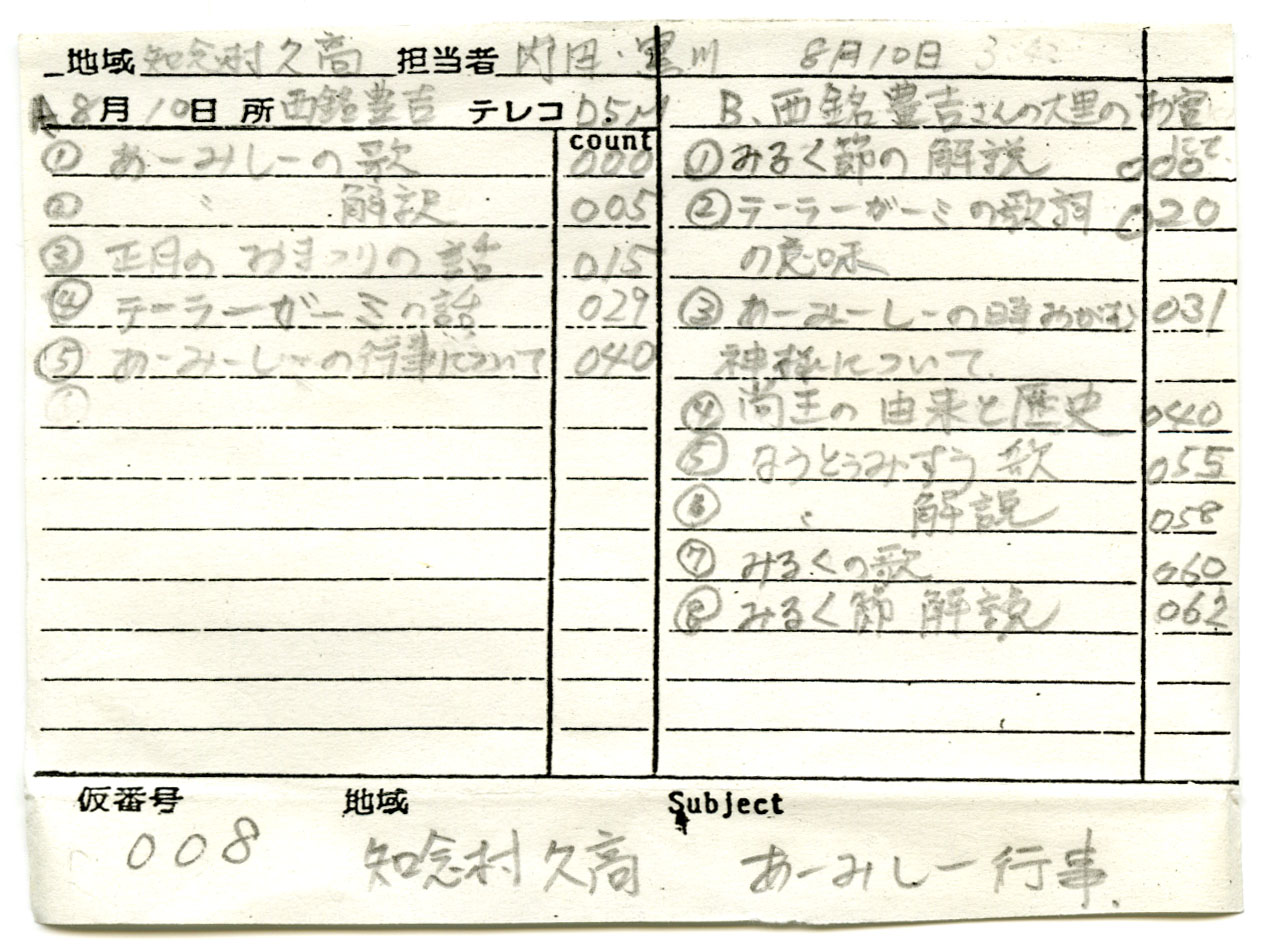 地域 知念村久高 担当者 内田・黒川 8月10日
A 8月10日 所 西銘豊吉 テレコ D5M
count
① あーみしーの歌 000
② 〃 解説 005
③ 正月のおまつりの話 015
④ テーラーガーミの話 029
⑤ あーみーしーの行事について 040
B、西銘豊吉さんの大里のお宮にて、
① みるく節の解説 000
② テーラーガーミの歌詞 020
の意味
③ あーみーしーの日拝みがむ 031
神様について
④ 尚王の由来と歴史 040
⑤ なうとぅみすう 歌 055
⑥ 〃 解説 058
⑦ みるくの歌 060
⑧ みるく節 解説 062
仮番号 地域 Subject
008 知念村久高 あーみしー行事